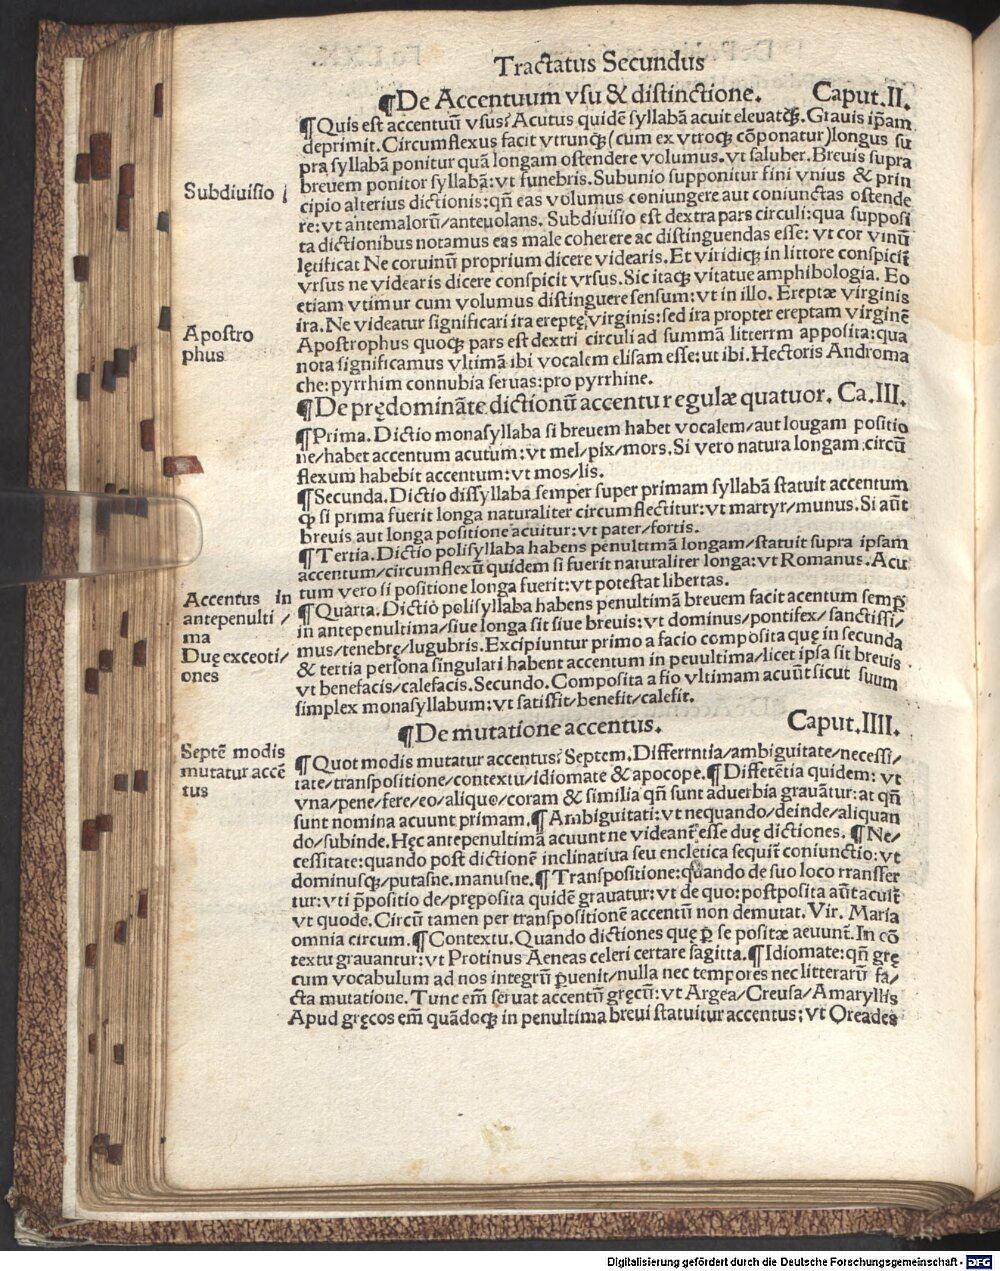 Tractatus Secundus
¶De Accentuum vsu & distinctione. Caput.II.
¶Quis est accentuū vsus? Acutus quidē syllabā acuit eleuatqꝫ. Grauis ip̄am
deprimit. Circumflexus facit vtrunqꝫ (cum ex vtroqꝫ cōponatur) longus su
pra syllabā ponitur quā longam ostendere volumus. vt saluber. Breuis supra
breuem ponitor syllabā: vt funebris. Subunio supponitur fini vnius & prin
cipio alterius dictionis: qn̄ eas volumus coniungere aut coniunctas ostende
re: vt antemalorū/anteuolans. Subdiuisio est dextra pars circuli: qua supposi
ta dictionibus notamus eas male coherere ac distinguendas esse: vt cor vinū
lętificat Ne coruinū proprium dicere videaris. Et viridiqꝫ in littore conspicit̄
vrsus ne videaris dicere conspicit vrsus. Sic itaqꝫ vitatue amphibologia. Eo
etiam vtimur cum volumus distinguere sensum: vt in illo. Ereptæ virginis
ira. Ne videatur significari ira ereptę virginis: sed ira propter ereptam virginē
Apostrophus quoqꝫ pars est dextri circuli ad summā litterrm apposita: qua
nota significamus vltimā ibi vocalem elisam esse: ut ibi. Hectoris Androma
che: pyrrhim connubia seruas: pro pyrrhine.
Subdiuisio
Apostro
phus
¶De prędomināte dictionū accentu regulæ quatuor. Ca.III.
¶Prima. Dictio monasyllaba si breuem habet vocalem/aut lougam positio
ne/habet accentum acutum: vt mel/pix/mors. Si vero natura longam circū
flexum habebit accentum: vt mos/lis.
¶Secunda. Dictio dissyllaba semper super primam syllabā statuit accentum
ꝙ si prima fuerit longa naturaliter circumflectitur: vt martyr/munus. Si aūt
breuis aut longa positione acuitur: vt pater/fortis.
¶Tertia. Dictio polisyllaba habens penultimā longam/statuit supra ipsam
accentum/circumflexū quidem si fuerit naturaliter longa: vt Romanus. Acu
tum vero si positione longa fuerit: vt potestat libertas.
¶Quarta. Dictio polisyllaba habens penultimā breuem facit acentum semꝑ
in antepenultima/siue longa sit siue breuis: vt dominus/pontifex/sanctissi/
mus/tenebrę/lugubris. Excipiuntur primo a facio composita quę in secunda
& tertia persona singulari habent accentum in peuultima/licet ipsa sit breuis
vt benefacis/calefacis. Secundo. Composita a fio vltimam acuūt sicut suum
simplex monasyllabum: vt satisfit/benefit/calefit.
Accentus in
antepenulti/
ma
Duę exceoti/
ones
¶De mutatione accentus. Caput.IIII.
¶Quot modis mutatur accentus? Septem. Differrntia/ambiguitate/necessi/
tate/transpositione/contextu/idiomate & apocope. ¶Differētia quidem: vt
vna/pene/fere/eo/aliquo/coram & similia qn̄ sunt aduerbia grauātur: at qn̄
sunt nomina acuunt primam. ¶Ambiguitati: vt nequando/deinde/aliquan
do/subinde. Hęc antepenultimā acuunt ne videant̄ esse duę dictiones. ¶Ne/
cessitate: quando post dictionē inclinatiua seu encletica sequit̄ coniunctio: vt
dominusqꝫ/putasne. manusne. ¶Transpositione: quando de suo loco rransfer
tur: vti p̄positio de/pręposita quidē grauatur: vt de quo: postposita aūt acuit̄
vt quode. Circū tamen per transpositionē accentū non demutat. Vir. Maria
omnia circum. ¶Contextu. Quando dictiones quę ꝑ se positæ aeuunt. In cō
textu grauantur: vt Protinus Aeneas celeri certare sagitta. ¶Idiomate: qn̄ grę
cum vocabulum ad nos integrū ꝓuenit/nulla nec tempores nec litterarū fa/
cta mutatione. Tunc em̄ seruat accentū gręcū: vt Argea/Creusa/Amaryllis
Apud gręcos em̄ quādoqꝫ in penultima breui statuitur accentus: vt Oreades
Septē modis
mutatur accē
tus
Digitalisierung gefördert durch die Deutsche Forschungsgemeinschaft - DFG